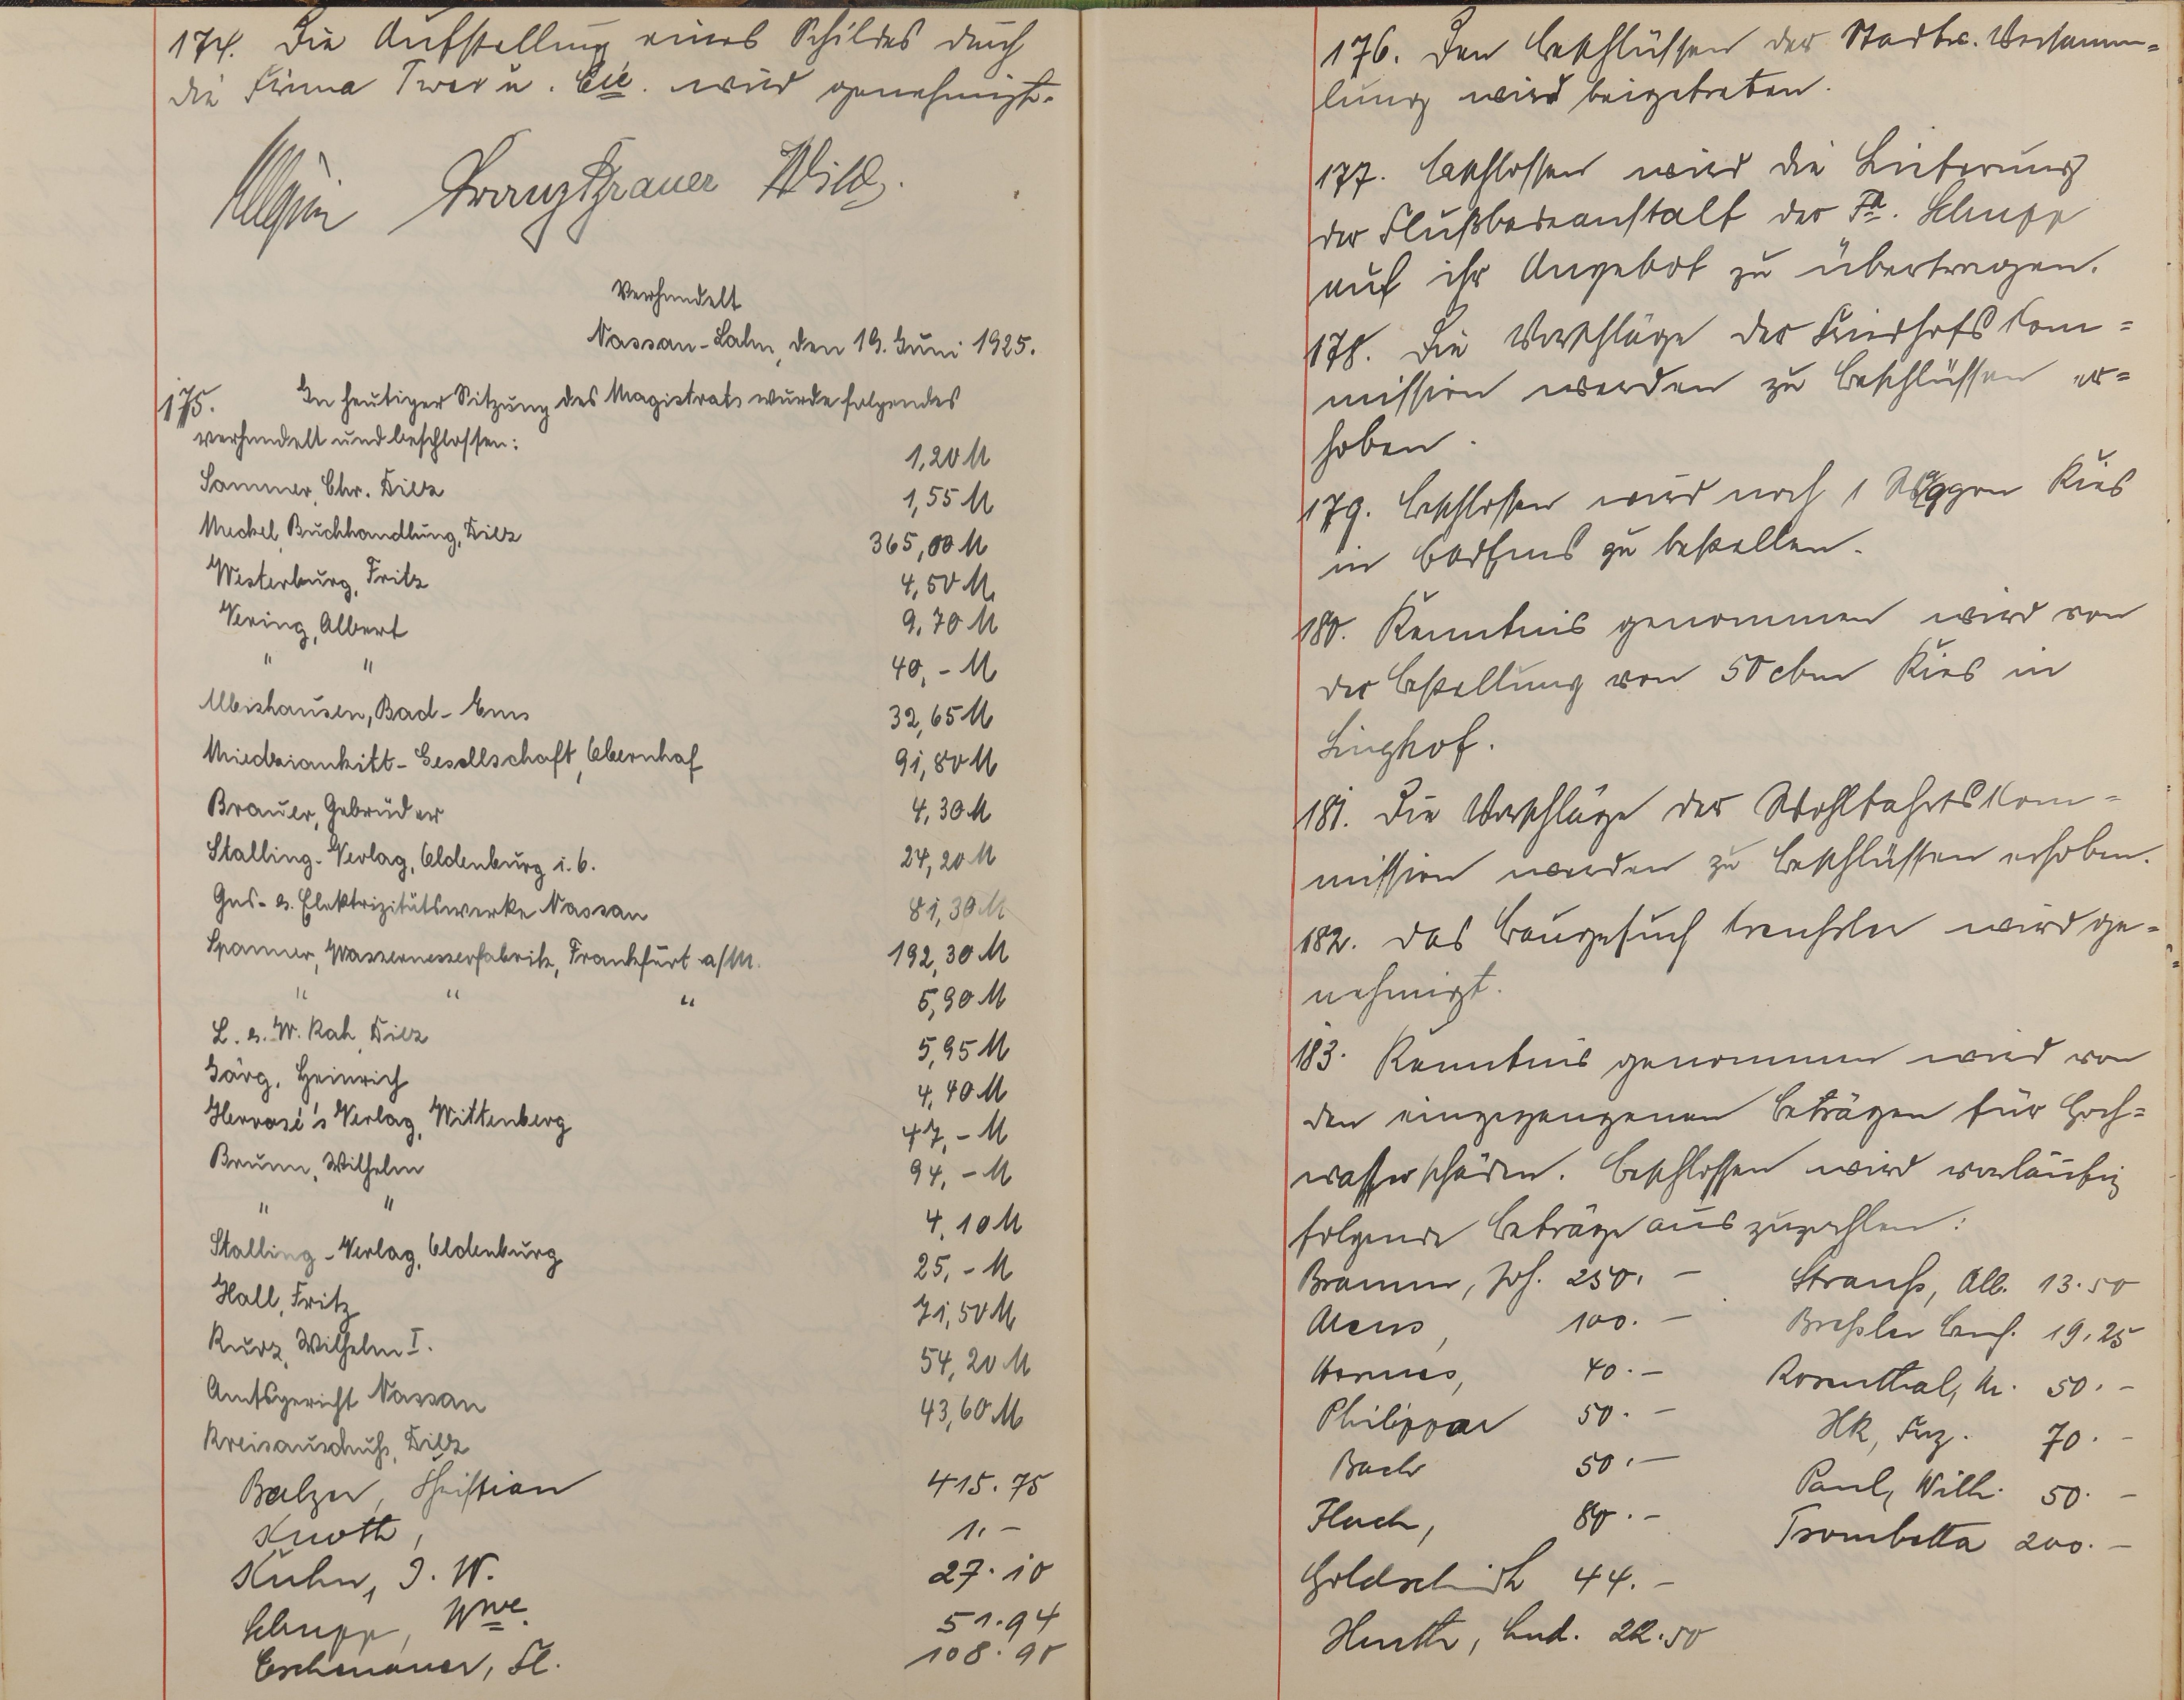 174. Die Aufstellung eines Schildes durch
die Firma Twer u. Cie. wird genehmigt.
Franz Brauer Wild
Verhandelt
Nassau-Lahn, den 19. Juni 1925.
175. In heutiger Sitzung des Magistrats wurde folgendes
verhandelt und beschlossen:
Sommer, Chr. Diez 1,20 M
Meckel, Buchhandlung, Diez 1,55 M
Westerburg, Fritz 365,00 M
Vering, Albert 4,50 M
" " 9,70 M
Bad-Ems 40,- M
Gesellschaft, Obernhof 32,65 M
Brauer, Gebrüder 91,80 M
Stalling-Verlag, Oldenburg i. O. 4,30 M
Gas- u. Elektrizitätswerke Nassau 24,20 M
Spanner, Wassermesserfabrik, Frankfurt a/M. 81,30 M
" " " 192,30 M
L. u. W. Rah, Diez 5,90 M
Görg, Heinrich 5,95 M
Herrosé's Verlag, Wittenberg 4,40 M
Brunn, Wilhelm 47,- M
" " 94,- M
Stalling-Verlag, Oldenburg 4,10 M
Hall, Fritz 25,- M
Kurz, Wilhelm I. 71,50 M
Amtsgericht Nassau 54,20 M
Kreisausschuß, Diez 43,60 M
Balzer, Christian 415.75
Knoth, 1.-
Kuhn, J. W. 27.10
Schupp, Wwe. 51.94
Eschenauer, Fl. 108.90
176. Den Beschlüssen der Stadtv. Versamm=
lung wird beigetreten.
177. Beschlossen wird die Lieferung
der Flußbadeanstalt der Fa. Schupp
auf ihr Angebot zu übertragen.
178. Die Vorschläge der Friedhofskom=
mission werden zu Beschlüssen er=
hoben.
179. Beschlossen wird noch 1 Waggon Kies
in Bad Ems zu bestellen.
180. Kenntnis genommen wird von
der Bestellung von 50 cbm Kies in
Linghof.
181. Die Vorschläge der Wohlfahrtskom=
mission werden zu Beschlüssen erhoben.
182. Das Baugesuch wird ge=
nehmigt.
183. Kenntnis genommen wird von
den eingegangenen Beträgen für Hoch=
wasserschäden. Beschlossen wird vorläufig
folgende Beträge auszuzahlen:
Bramm, Joh. 250.- Strauß, Alb. 13.50
100.- Breßler 19.25
Hermes, 40.- Rosenthal, M. 50.-
Philippar 50.- 70.-
Bach 50.- Paul, Wilh. 50.-
Flach, 80.- Trombetta 200.-
Goldschmidt 44.-
Huth, Lud. 22.50